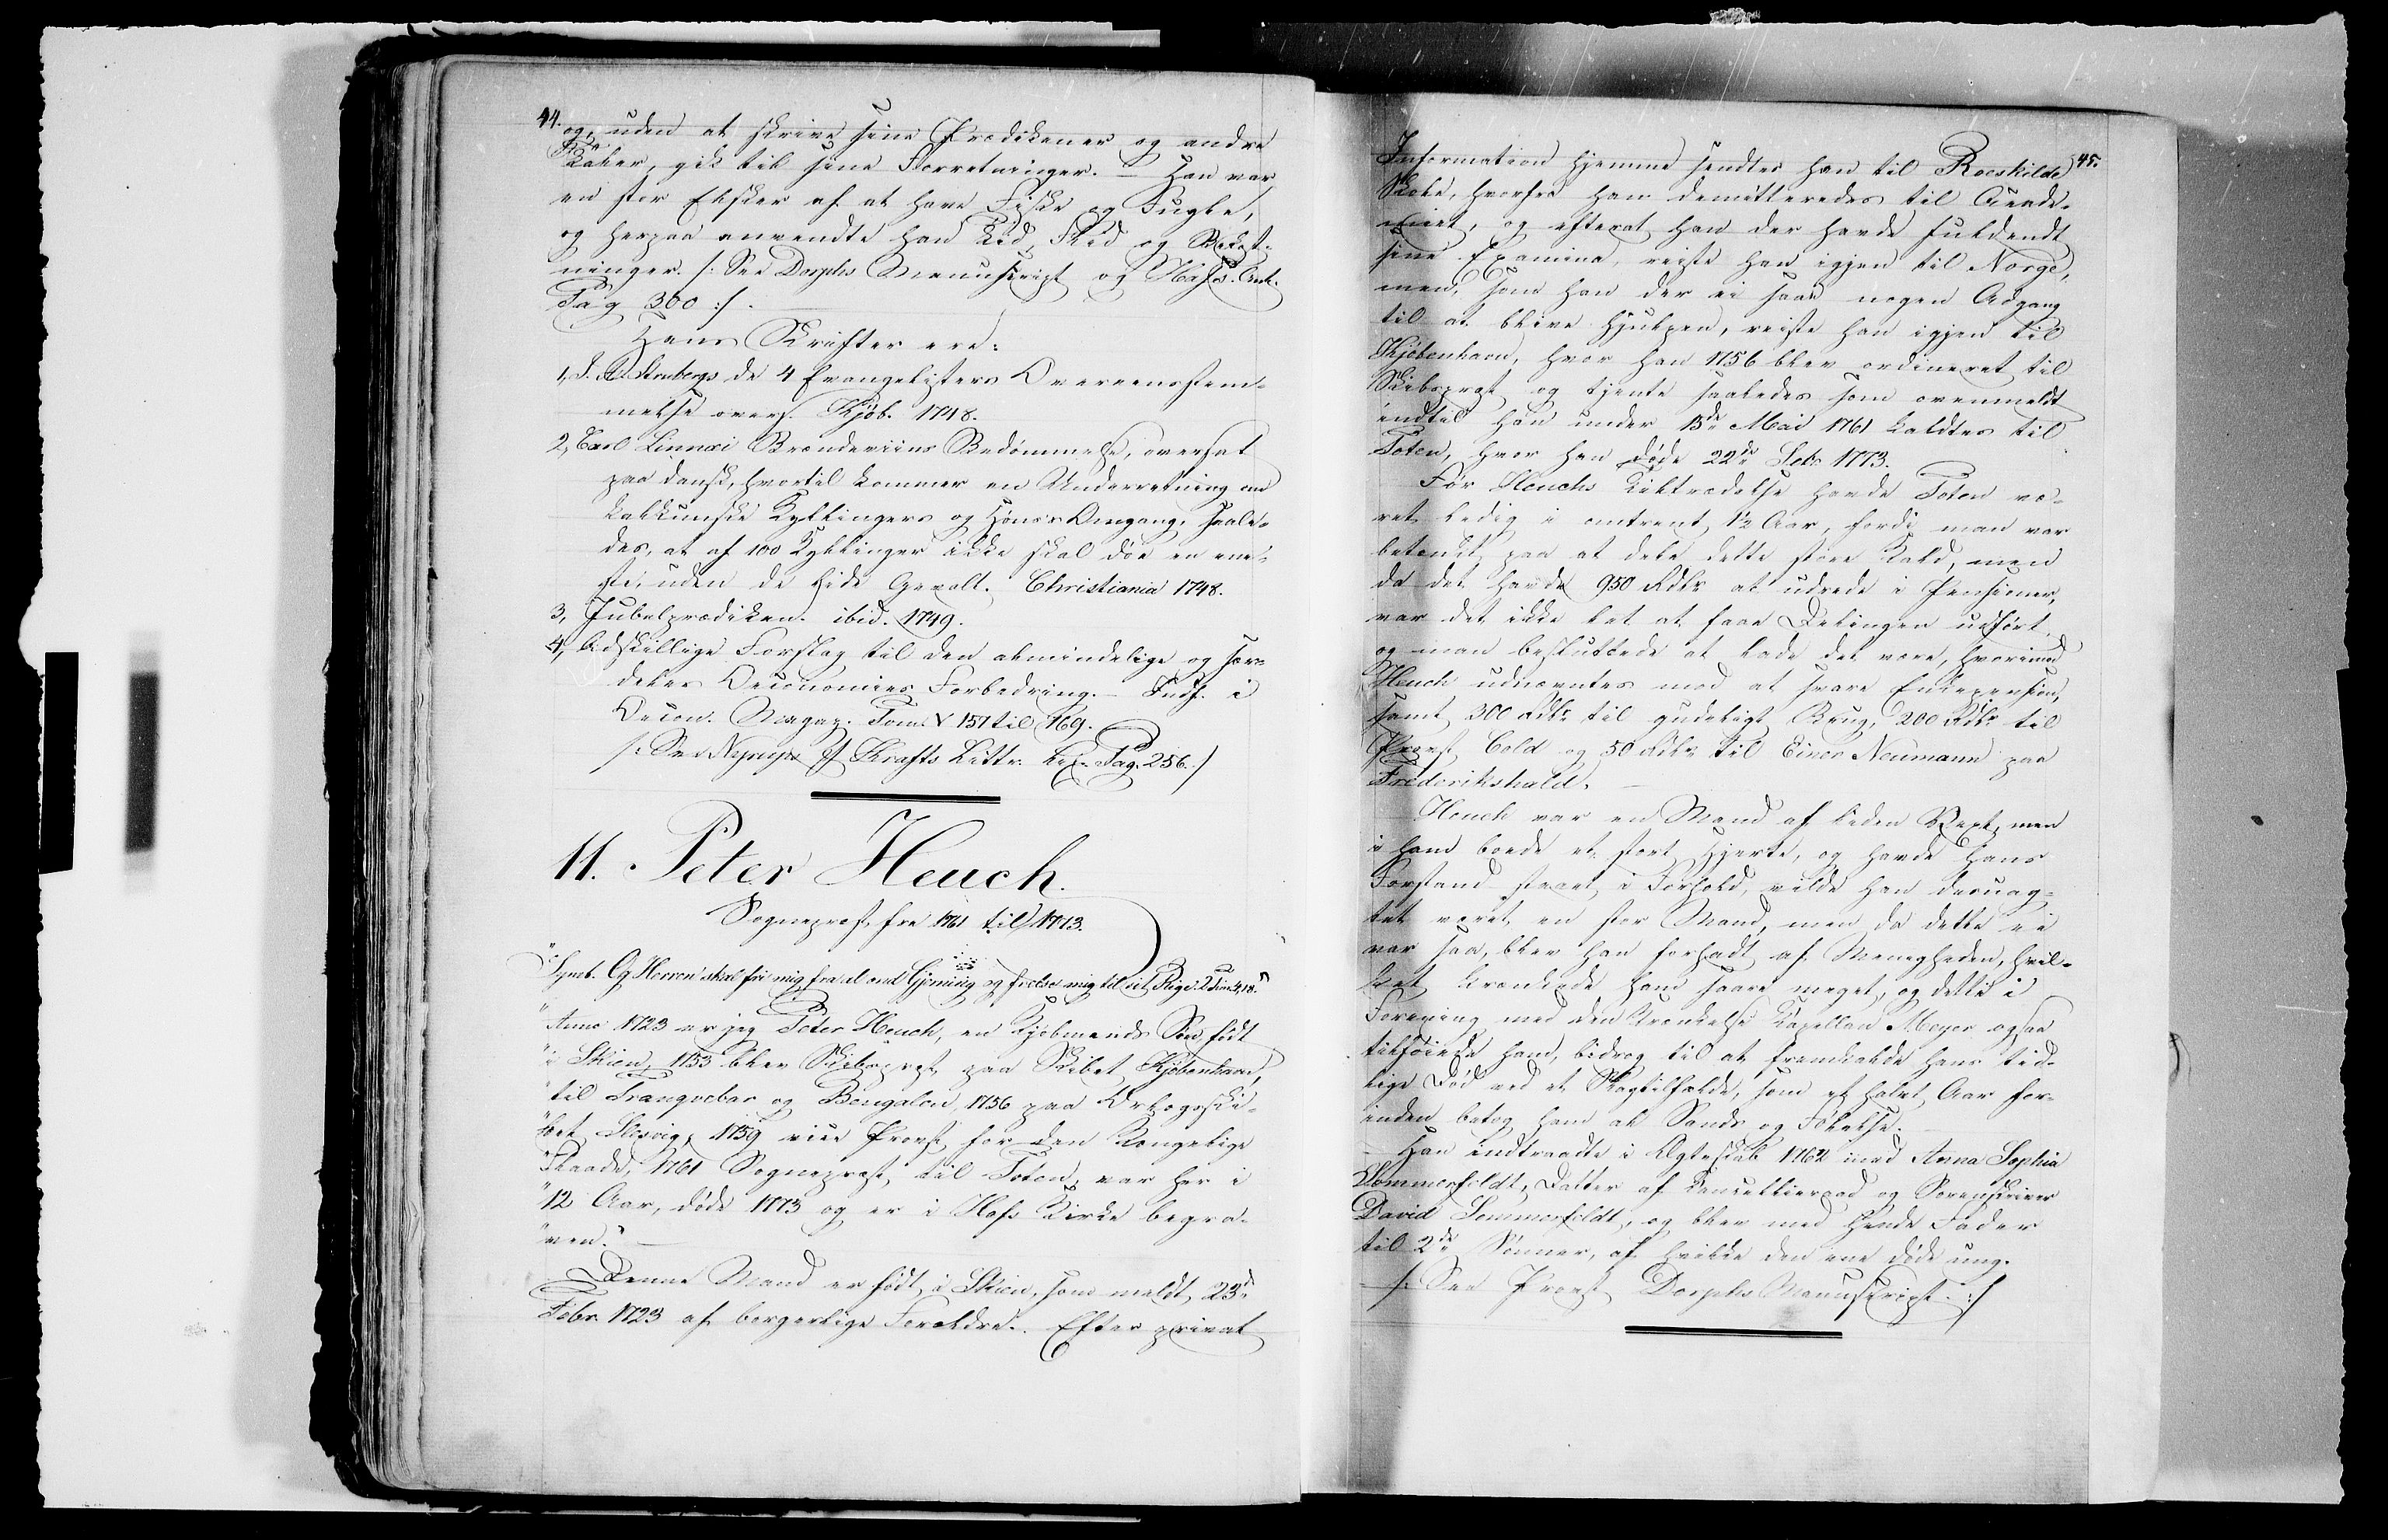 44.
og, uden at skrive sine Prædikener og andre
Taler, gik til sine Forretninger. — Han var
en stor Elsker af at have Fiske og Fugle,
og herpaa anvendte han Tid, Flid og Bekost-
ninger. /: See Dorphs Manuscript og Hofs Ant.
Pag. 300 :/.
Hans Skrifter ere:
1, de 4 Evangelisters Overeensstem-
melse overs. Kjøb. 1748.
2, Carl Linnæi Brændeviins Bedømmelse, oversat
paa dansk, hvortil kommer en Underretning om
kalkunske Kyllingers og Høns's Omgang, saale-
des, at af 100 Kyllinger ikke skal døe en ene-
ste, uden de lide Gevalt. Christiania 1748.
3, Jubelprædiken. ibid. 1749.
4, Adskillige Forslag til den almindelige og sær-
deles Oeconomies Forbedring. — Inds. i
Oecon. Magaz. Tom. V 157 til 169.
/: See Nyerups & Krafts Littr. Lex. Pag. 256. /
11. Peter Heuch.
Sognepræst fra 1761 til 1773.
"Symb. Og Herren skal frie mig fra al ond Gjerning og frelse mig til sit Rige. 2 Tim. 4, 18."
"Anno 1723 er jeg Peter Heuch, en Kjøbmands Søn, født
"i Skien, 1753 blev Skibspræst paa Skibet Kjøbenhavn,
"til Tranqvebar og Bengalen, 1756 paa Orlogsski-
"bet Slesvig, 1759 vice Provst for den Kongelige
"Flaade, 1761 Sognepræst til Toten, var her i
"12 Aar, døde 1773 og er i Hofs Kirke begra-
"ven." —
Denne Mand er født i Skien, som meldt, 23de
Febr. 1723 af borgerlige Forældre. Efter privat
45.
Information hjemme sendtes han til Roeskilde
Skole, hvorfra han demitteredes til Acade-
miet, og efterat han der havde fuldendt
sine Examina, reiste han igjen til Norge,
men, som han der ei saae nogen Adgang
til at blive hjulpen, reiste han igjen til
Kjøbenhavn, hvor han 1756 blev ordineret til
Skibspræst og tjente saaledes som ovenmeldt
indtil han under 15de Mai 1761 kaldtes til
Toten, hvor han døde 22de 1773.
Før Heuchs Tiltrædelse havde Toten væ-
ret ledig i omtrent 1½ Aar, fordi man var
betænkt paa at dele dette store Kald, men
da det havde 950 Rdlr at udrede i Pensioner,
var det ikke let at faae Delingen udført,
og man besluttede at lade det være, hvorimod
Heuch udnævntes mod at svare Enkepension,
samt 300 Rdlr til gudeligt Brug, 200 Rdlr til
Provst Cold og 50 Rdlr til Einer Neumann paa
Frederikshald. —
Heuch var en Mand af liden Vext, men
i ham boede et stort Hjerte, og havde hans
Forstand staaet i Forhold, vilde han desuag-
tet været en stor Mand, men da dette ei
var saa, blev han forhadt af Menigheden, hvil-
ket krænkede ham saare meget, og dette i
Forening med den Krænkelse Kapellan Meyer ogsaa
tilføiede ham, bidrog til at fremkalde hans tid-
lige Død ved et Slagtilfælde, som et halvt Aar for-
inden betog ham al Sands og Følelse. —
Han indtraadte i Ægteskab 1762 med Anna Sophia
Sommerfeldt, Datter af Cancelliraad og Sorenskriver
David Sommerfeldt, og blev med hende Fader
til 2de Sønner, af hvilke den ene døde ung.
/: See Provst Dorphs Manuscript. :/